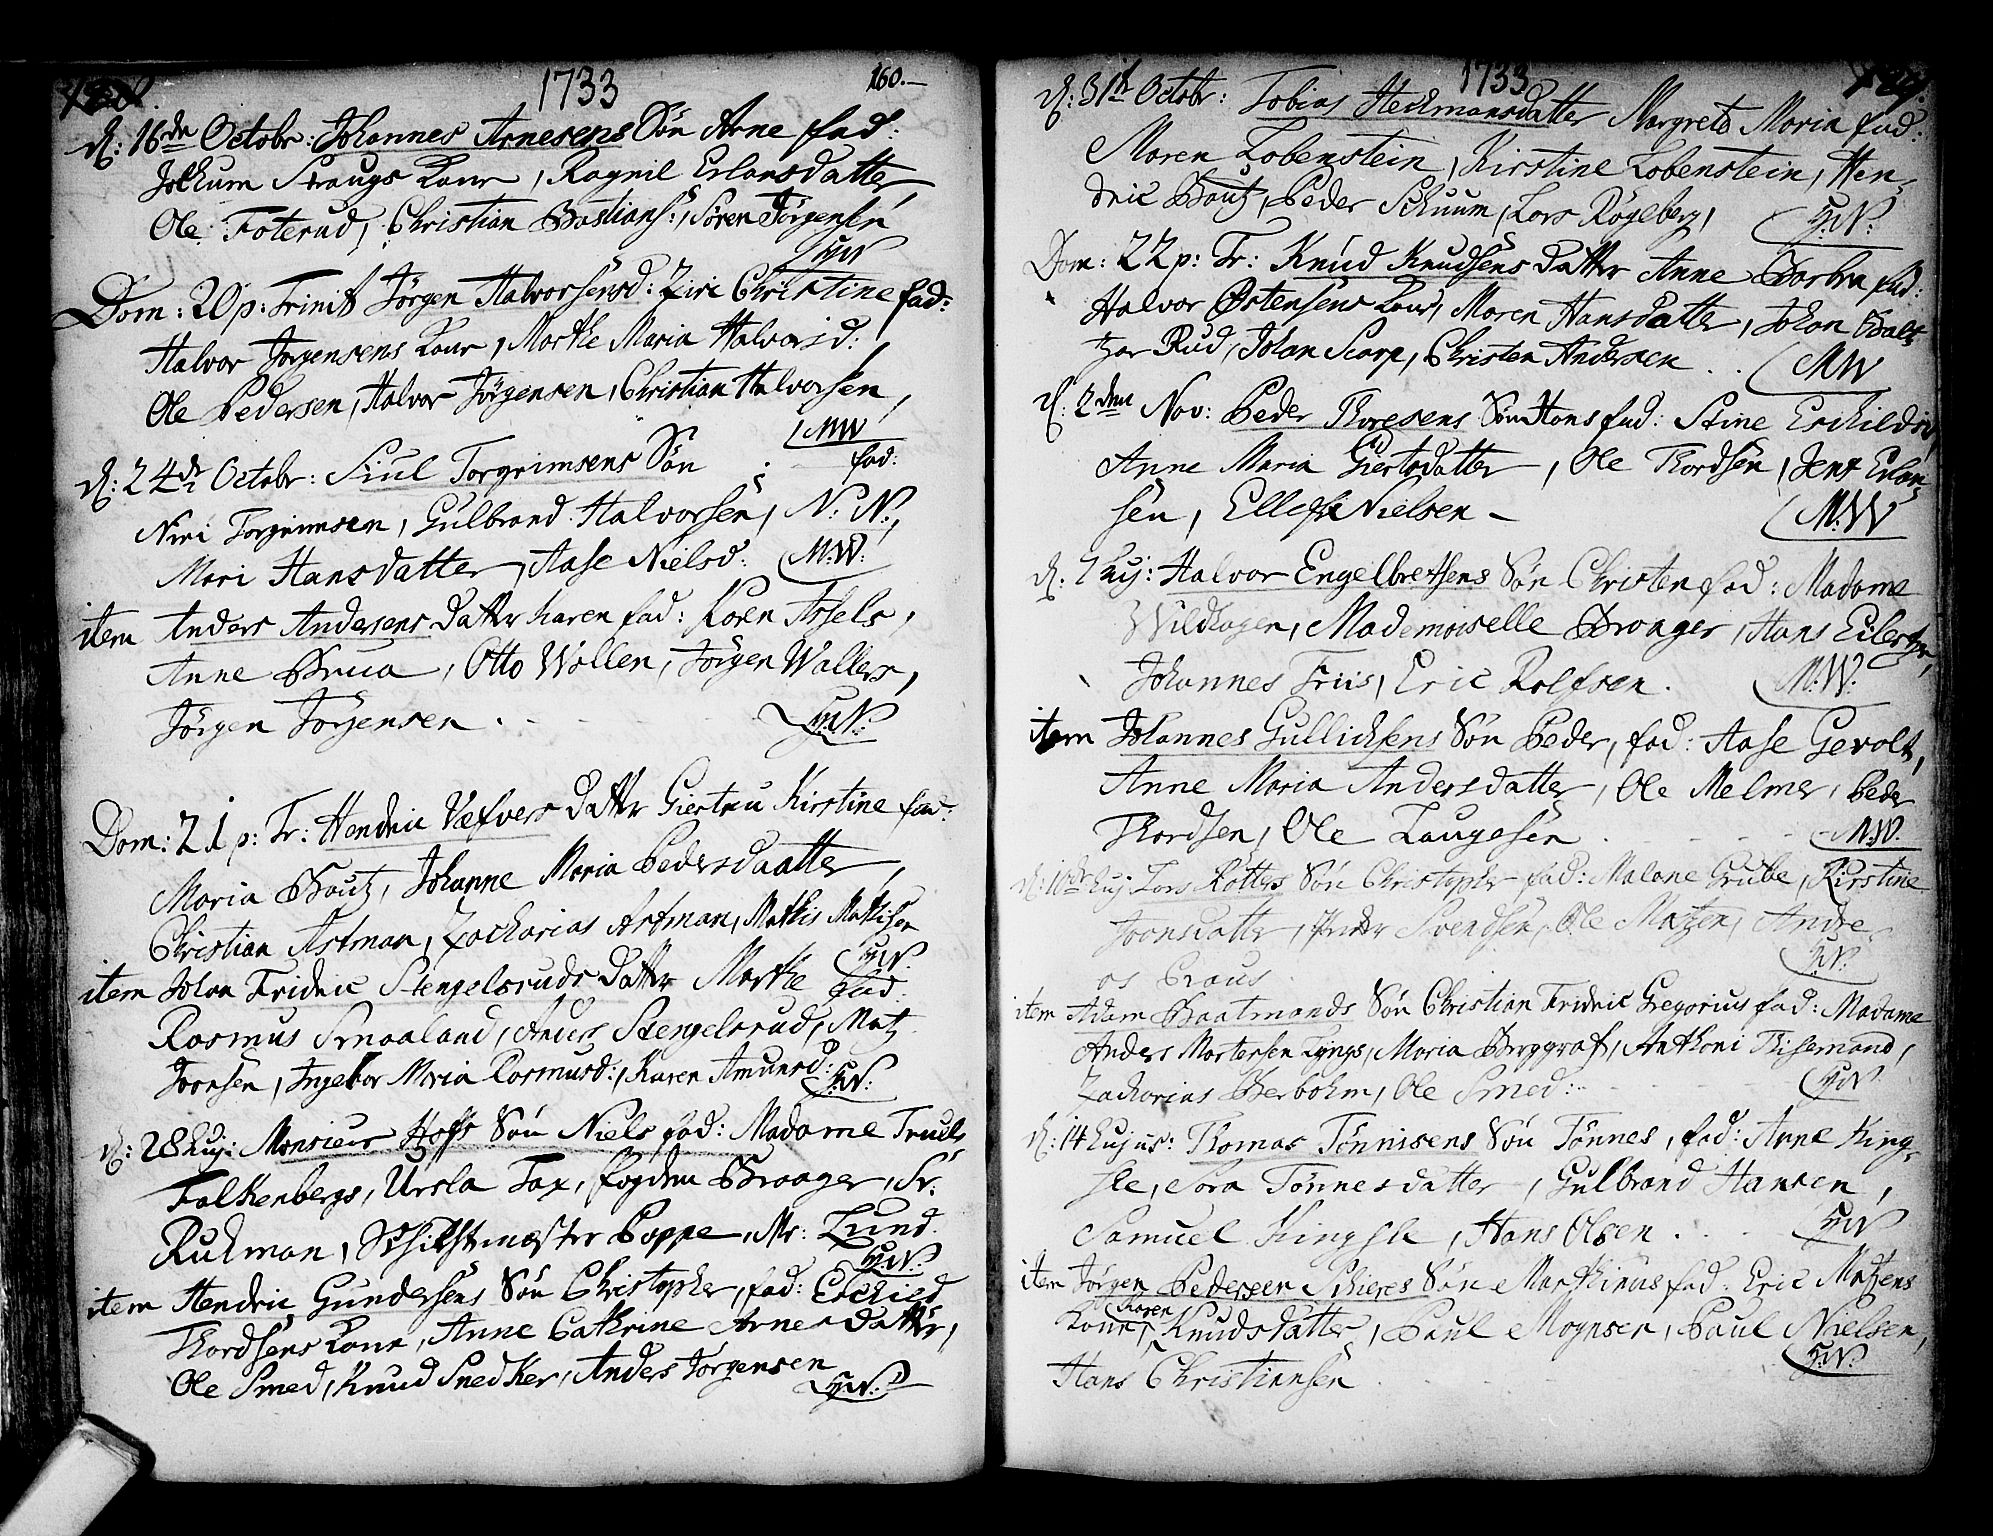 1733
160.
d: 16de Octobr: Johannes Arnesens Søn Arne fad:
Jokum Straugs Kone, Ragnil Erlansdatter,
Ole Foterud, Christian Bastians:, Søren Jørgensen
HW
Dom: 20 p: Trinit Jørgen Halvorsens d: Ziri Christine fad:
Halvor Jørgensens Kone, Marthe Maria Halvorsd:,
Ole Pedersen, Halvor Jørgensen, Christian Halvorsen,
MW
d: 24de Octobr: Siul Torgrimsens Søn fad:
Niri Torgrimsen, Gulbrand Halvorsen, N: N:,
Mari Hansdatter, Aase Nielsd: M:W:
item Anders Andersens Datter Karen fad: Koen Axsels,
Anne Brua, Otto Wollen, Jørgen Wallers,
Jørgen Jørgensen. H:W:
Dom: 21 p: Tr: Hendric Væfvers Datter Giertru Kirstine fad:
Maria Bautz, Johanne Maria Pedersdaatter,
Christian Artman, Zacharias Artman, Mathis Mathisen
H:W:
item Johan Fridric Stengelsruds Datter Marthe fad:
Rasmus Smaaland, Anders Stengelsrud, Matz
Joensen, Ingebor Maria Rasmusd:, Karen Amunsd:
H:W:
d: 28 huj: Monsieur Hofs Søn Niels fad: Madame Truels
Falkenbergs, Ursla Fax, fogden Braager, Sr:
Rukman, Schiktmæster Poppe, Mr: Lund.
H:W:
item Hendric Gundersens Søn Christopher, fad: Erchied
Thordsens Kone, Anne Cathrine Arnesdatter,
Ole Smed, Knud Snedker, Anders Jørgensen
H:W:
1733
d: 31te Octobr: Tobias Heckmansdatter Margrete Maria fad:
Maren Lobenstein, Kirstine Lobenstein, Hen-
dric Bautz, Peder Schuum, Lars Røgeberg, H:W:
Dom: 22 p: Tr: Knud Knudsens Datter Anne Barbra fad:
Halvor Østensens Kone, Maren Hansdatter, Johan Balt-
zar Rud, Johan Scarp, Christen Andersen.. MW
d: 2den Nov: Peder Thoresens Søn Hans fad: Stine Eschildsd,
Anne Maria Giertsdatter, Ole Thordsen, Jens Erlan-
sen, Ellef Nielsen – M:W
d: 7 huj: Halvor Engelbretsens Søn Christen fad: Madame
Wildhagen, Mademoiselle Braager, Hans Eilertzen,
Johannes Friis, Eric Rolfsen. M:W:
item Johannes Gullichsens Søn Peder, fad: Aase Gevolt,
Anne Maria Andersdatter, Ole Melmer, Peder
Thordsen, Ole Laugesen. M:W:
d: 10de huj: Lars Røtters Søn Christopher fad: Malane Grube, Kirstine
Joensdatter, Peder Svendsen, Ole Matzen, Andre-
as Praus. H:W:
item Adam Baatmands Søn Christian Fridric Gregorius fad: Madame
Anders Mortensen Lyngs, Maria Borggraf, Anthoni Thisemand,
Zacharias Berbohm, Ole Smed: HW
d: 14 hujus: Thomas Tønnisens Søn Tønnes, fad: Anne King-
sle, Sara Tønnesdatter, Gulbrand Hansen,
Samuel Kingsle, Hans Olsen. HW
item Jørgen Pedersen Schieres Søn Marthinus fad: Eric Matzens
Kone, Karen Knudsdatter, Paul Mognsen, Paul Nielsen,
Hans Christiansen H:W: